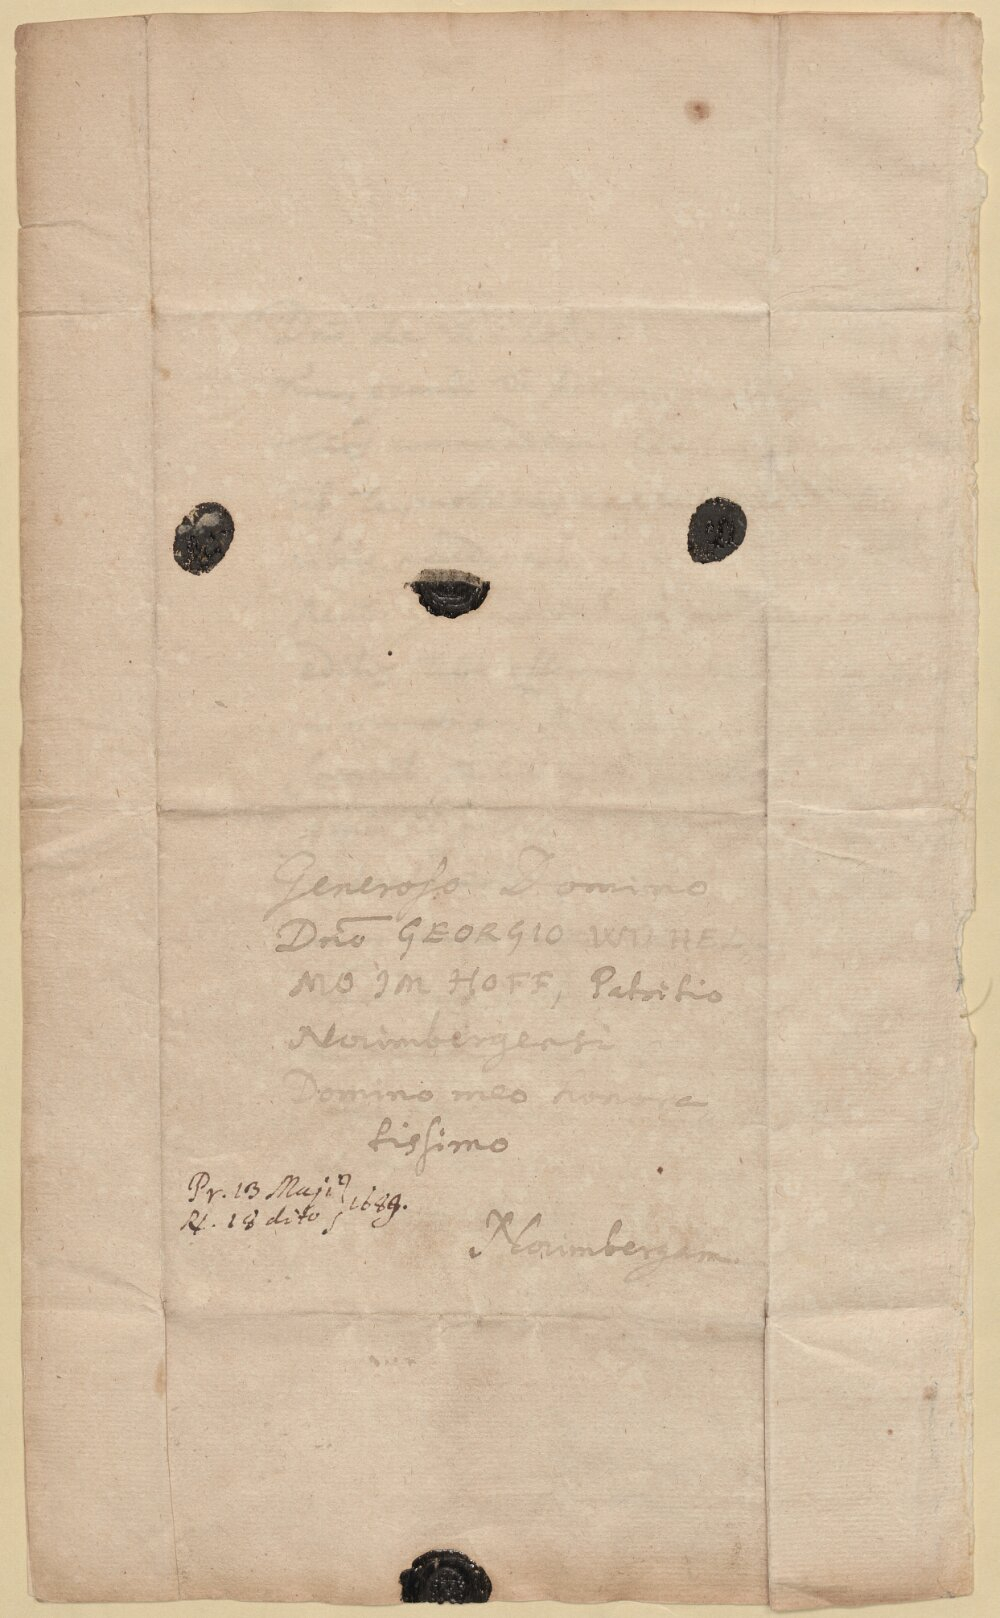 Generoso Domino
Dno GEORGIO WILHEL
MO IM HOFF, Patritio
Norimbergensi
Domino meo honora
tissimo
Pr. 13 Maji
R. 18 dito 1689.
Norimbergam